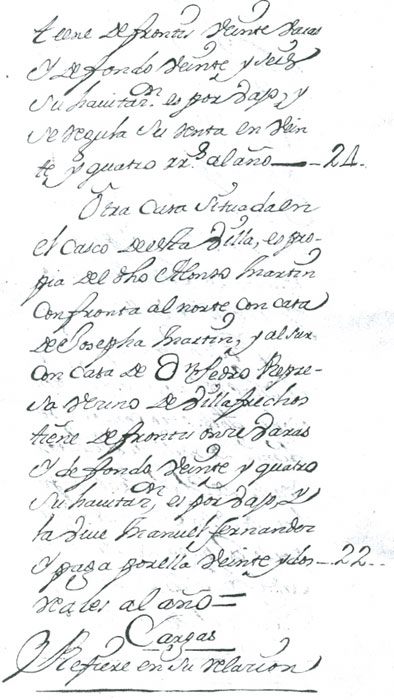 tiene de frontis veinte varas
y de fondo veinte y seis
su havitaon. es por vajo, y
se regula su renta en vein
te y quatro rrs. al año — 24.
Otra casa situada en
el casco de esta Villa, es pro-
pia del dho Alonso Martin
confronta al norte con casa
de Josepha Martin, y al sur
con casa de Dn. Pedro Represa
vecino de Villafrechos
tiene de frontis onze varas
y de fondo veinte y quatro
su havitaon. es por vajo, y
la vive Manuel Fernandez
y paga por ella veinte y dos — 22..
reales al año =
Cargas
Refiere en su relacion